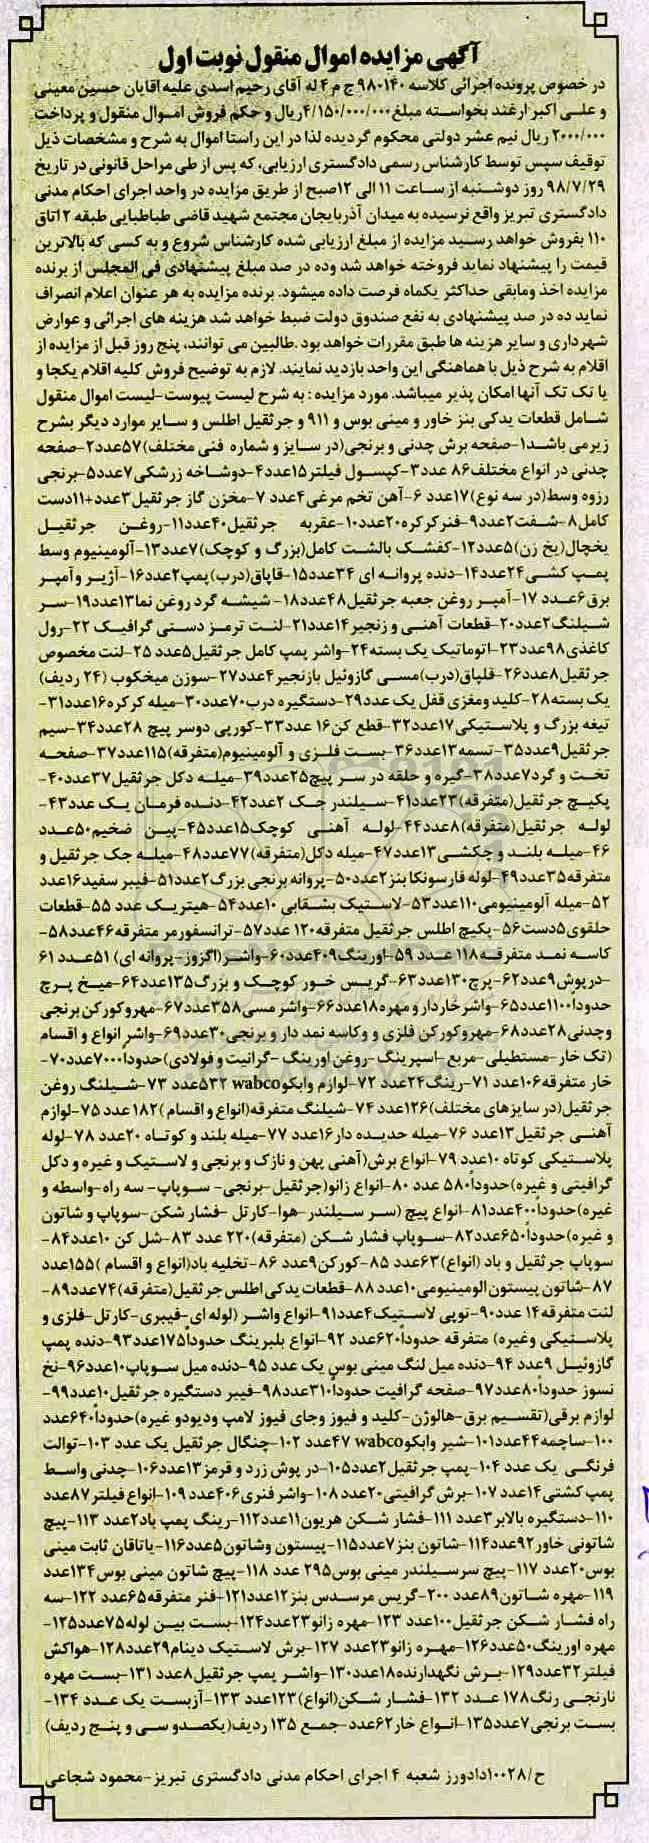 آگهی مزایده اموال منقول نوبت اول
در خصوص پرونده اجرائی کلاسه ۹۸۰۱۴۰ ج م ۴ له آقای رحیم اسدی علیه آقایان حسین معینی
و علی اکبر ارغند بخواسته مبلغ ۴/۱۵۰/۰۰۰/۰۰۰ریال و حکم فروش اموال منقول و پرداخت
۲۰۰۰/۰۰۰ ریال نیم عشر دولتی محکوم گردیده لذا در این راستا اموال به شرح و مشخصات ذیل
توقیف سپس توسط کارشناس رسمی دادگستری ارزیابی، که پس از طی مراحل قانونی در تاریخ
۹۸/۷/۲۹ روز دوشنبه از ساعت ۱۱ الی ۱۲صبح از طریق مزایده در واحد اجرای احکام مدنی
دادگستری تبریز واقع نرسیده به میدان آذربایجان مجتمع شهید قاضی طباطبایی طبقه ۲ اتاق
۱۱۰ بفروش خواهد رسید مزایده از مبلغ ارزیابی شده کارشناس شروع و به کسی که بالاترین
قیمت را پیشنهاد نماید فروخته خواهد شد وده در صد مبلغ پیشنهادی فی المجلس از برنده
مزایده اخذ ومابقی حداکثر یکماه فرصت داده میشود. برنده مزایده به هر عنوان اعلام انصراف
نماید ده در صد پیشنهادی به نفع صندوق دولت ضبط خواهد شد هزینه های اجرائی و عوارض
شهرداری و سایر هزینه ها طبق مقررات خواهد بود .طالبین می توانند، پنج روز قبل از مزایده از
اقلام به شرح ذیل با هماهنگی این واحد بازدید نمایند. لازم به توضیح فروش کلیه اقلام یکجا و
یا تک تک آنها امکان پذیر میباشد. مورد مزایده : به شرح لیست پیوست-لیست اموال منقول
شامل قطعات یدکی بنز خاور و مینی بوس و ۹۱۱ و جرثقیل اطلس و سایر موارد دیگر بشرح
زیرمی باشد۱-صفحه برش چدنی و برنجی(در سایز و شماره فنی مختلف)۵۷عدد۲-صفحه
چدنی در انواع مختلف۸۶ عدد۳-کپسول فیلتر۱۵عدد۴-دوشاخه زرشکی۷عدد۵-برنجی
رزوه وسط(در سه نوع)۱۷عدد ۶-آهن تخم مرغی۴عدد ۷-مخزن گاز جرثقیل۳عدد+۱۱دست
کامل۸-شفت۲عدد۹-فنرکرکره۲۰عدد۱۰-عقربه جرثقیل۴۰عدد۱۱-روغن جرثقیل
یخچال(یخ زن)۵عدد۱۲-کفشک بالشت کامل(بزرگ و کوچک)۷عدد۱۳-آلومینیوم وسط
پمپ کشی۲۴عدد۱۴-دنده پروانه ای ۳۴عدد۱۵-قاپاق(درب)پمپ۲عدد۱۶-آژیر و آمپر
برق۶عدد ۱۷-آمپر روغن جعبه جرثقیل۴۸عدد۱۸-شیشه گرد روغن نما۱۳عدد۱۹-سر
شیلنگ۲عدد۲۰-قطعات آهنی و زنجیر۱۴عدد۲۱-لنت ترمز دستی گرافیک ۲۲-رول
کاغذی۹۸عدد۲۳-اتوماتیک یک بسته۲۴-واشر پمپ کامل جرثقیل۵عدد ۲۵-لنت مخصوص
جرثقیل۸عدد۲۶-قلپاق(درب)مسی گازوئیل بازنجیر۴عدد۲۷-سوزن میخکوب (۲۴ ردیف)
یک بسته۲۸-کلید ومغزی قفل یک عدد۲۹-دستگیره درب۷۰عدد۳۰-میله کرکره۱۶عدد۳۱-
تیغه بزرگ و پلاستیکی۱۷عدد۳۲-قطع کن۱۶ عدد۳۳-کورپی دوسر پیچ ۲۸عدد۳۴-سیم
جرثقیل۹عدد۳۵-تسمه۱۳عدد۳۶-بست فلزی و آلومینیوم(متفرقه)۱۱۵عدد۳۷-صفحه
تخت و گرد۷عدد۳۸-گیره و حلقه در سر پیچ۲۵عدد۳۹-میله دکل جرثقیل۳۷عدد۴۰-
پکیج جرثقیل(متفرقه)۲۳عدد۴۱-سیلندر جک ۲عدد۴۲-دنده فرمان یک عدد۴۳-
لوله جرثقیل(متفرقه)۸عدد۴۴-لوله آهنی کوچک۱۵عدد۴۵-پین ضخیم۵۰عدد
۴۶-میله بلند و چکشی۱۳عدد۴۷-میله دکل(متفرقه)۷۷عدد۴۸-میله جک جرثقیل و
متفرقه۳۵عدد۴۹-لوله فارسونکا بنز۲عدد۵۰-پروانه برنجی بزرگ۲عدد۵۱-فیبر سفید۱۶عدد
۵۲-میله آلومینیومی۱۱۰عدد۵۳-لاستیک بشقابی ۱۰عدد۵۴-هیتریک عدد ۵۵-قطعات
حلقوی۵دست۵۶-پکیج اطلس جرثقیل متفرقه۱۲۰ عدد۵۷-ترانسفورمر متفرقه۴۶عدد۵۸-
کاسه نمد متفرقه۱۱۸ عدد ۵۹-اورینگ۴۰۹عدد۶۰-واشر(اگزوز-پروانه ای) ۵۱عدد ۶۱
-درپوش۹عدد۶۲-پرچ۱۳۰عدد۶۳-گریس خور کوچک و بزرگ۱۳۵عدد۶۴-میخ پرچ
حدودا۱۱۰۰عدد۶۵-واشرخاردار و مهره۱۸عدد۶۶-واشر مسی۳۵۸عدد۶۷-مهروکورکن برنجی
وچدنی۲۸عدد۶۸-مهروکورکن فلزی و وکاسه نمد دار و برنجی۳۰عدد۶۹-واشر انواع و اقسام
(تک خار-مستطیلی-مربع-اسپرینگ-روغن اورینگ -گرانیت و فولادی)حدوداً۷۰۰۰عدد۷۰-
خار متفرقه۱۰۶عدد ۷۱-رینگ۲۴عدد ۷۲-لوازم وابکوwabco ۵۳۲عدد ۷۳-شیلنگ روغن
جرثقیل(در سایزهای مختلف)۱۲۶عدد ۷۴-شیلنگ متفرقه(انواع و اقسام )۱۸۲ عدد ۷۵-لوازم
آهنی جرثقیل۱۳عدد ۷۶-میله حدیده دار۱۶عدد ۷۷-میله بلند و کوتاه ۲۰عدد ۷۸-لوله
پلاستیکی کوتاه ۱۰عدد ۷۹-انواع برش(آهنی پهن و نازک و برنجی و لاستیک و غیره و دکل
گرافیتی و غیره)حدوداً۵۸۰ عدد ۸۰-انواع زانو(جرثقیل-برنجی- سوپاپ- سه راه-واسطه و
غیره)حدوداً۴۰۰عدد۸۱-انواع پیچ (سر سیلندر-هوا-کارتل -فشار شکن-سوپاپ و شاتون
و غیره)حدوداً۶۵۰عدد۸۲-سوپاپ فشار شکن (متفرقه)۲۲۰ عدد ۸۳-شل کن ۱۰عدد۸۴-
سوپاپ جرثقیل و باد (انواع)۶۳عدد ۸۵-کورکن۹عدد ۸۶-تخلیه باد(انواع و اقسام )۱۵۵عدد
۸۷-شاتون پیستون الومینیومی۱۰عدد ۸۸-قطعات یدکی اطلس جرثقیل(متفرقه)۷۴عدد۸۹-
لنت متفرقه۱۴ عدد۹۰-توپی لاستیک۴عدد۹۱-انواع واشر (لوله ای-فیبری-کارتل-فلزی و
پلاستیکی وغیره) متفرقه حدوداً۶۲۰عدد ۹۲-انواع بلبرینگ حدوداً۱۷۵عدد۹۳-دنده پمپ
گازوئیل ۹عدد ۹۴-دنده میل لنگ مینی بوس یک عدد ۹۵-دنده میل سوپاپ۱۰عدد۹۶-نخ
نسوز حدوداً۸۰عدد۹۷-صفحه گرافیت حدوداً۳۱۰عدد۹۸-فیبر دستگیره جرثقیل۱۰عدد۹۹-
لوازم برقی(تقسیم برق-هالوژن-کلید و فیوز وجای فیوز لامپ ودیودو غیره)حدوداً۶۴۰عدد
۱۰۰-ساچمه۴۴عدد۱۰۱-شیر وابکوwabco ۴۷عدد ۱۰۲-چنگال جرثقیل یک عدد ۱۰۳-توالت
فرنگی یک عدد ۱۰۴-پمپ جرثقیل۲عدد۱۰۵-در پوش زرد و قرمز۱۳عدد۱۰۶-چدنی واسط
پمپ کشتی۱۴عدد ۱۰۷-برش گرافیتی۲۰عدد ۱۰۸-واشر فنری۴۰۶عدد ۱۰۹-انواع فیلتر۸۷عدد
۱۱۰-دستگیره بالابر۳عدد ۱۱۱-فشار شکن هریون۱۱عدد۱۱۲-رینگ پمپ باد۲عدد ۱۱۳-پیچ
شاتونی خاور۹۲عدد۱۱۴-شاتون بنز۷عدد۱۱۵-پیستون وشاتون۵عدد۱۱۶-یاتاقان ثابت مینی
بوس۲۰عدد ۱۱۷-پیچ سرسیلندر مینی بوس۲۹۵ عدد ۱۱۸-پیچ شاتون مینی بوس۱۳۴عدد
۱۱۹-مهره شاتون۸۹عدد ۲۰۰-گریس مرسدس بنز۱۲عدد۱۲۱-فنر متفرقه۶۵عدد ۱۲۲-سه
راه فشار شکن جرثقیل۱۰۰عدد ۱۲۳-مهره زانو۲۳عدد۱۲۴-بست بین لوله۷۵عدد۱۲۵-
مهره اورینگ۵۰عدد۱۲۶-مهره زانو۲۳عدد ۱۲۷-برش لاستیک دینام۲۹عدد۱۲۸-هواکش
فیلتر۳۲عدد۱۲۹-برش نگهدارنده۱۸عدد۱۳۰-واشر پمپ جرثقیل۸عدد ۱۳۱-بست مهره
نارنجی رنگ۱۷۸ عدد ۱۳۲-فشار شکن(انواع)۱۲۳عدد ۱۳۳-آزبست یک عدد ۱۳۴-
بست برنجی۷عدد۱۳۵-انواع خار۶۲عدد-جمع ۱۳۵ ردیف(یکصدو سی و پنج ردیف)
ح/۱۰۰۲۸دادورز شعبه ۴ اجرای احکام مدنی دادگستری تبریز-محمود شجاعی